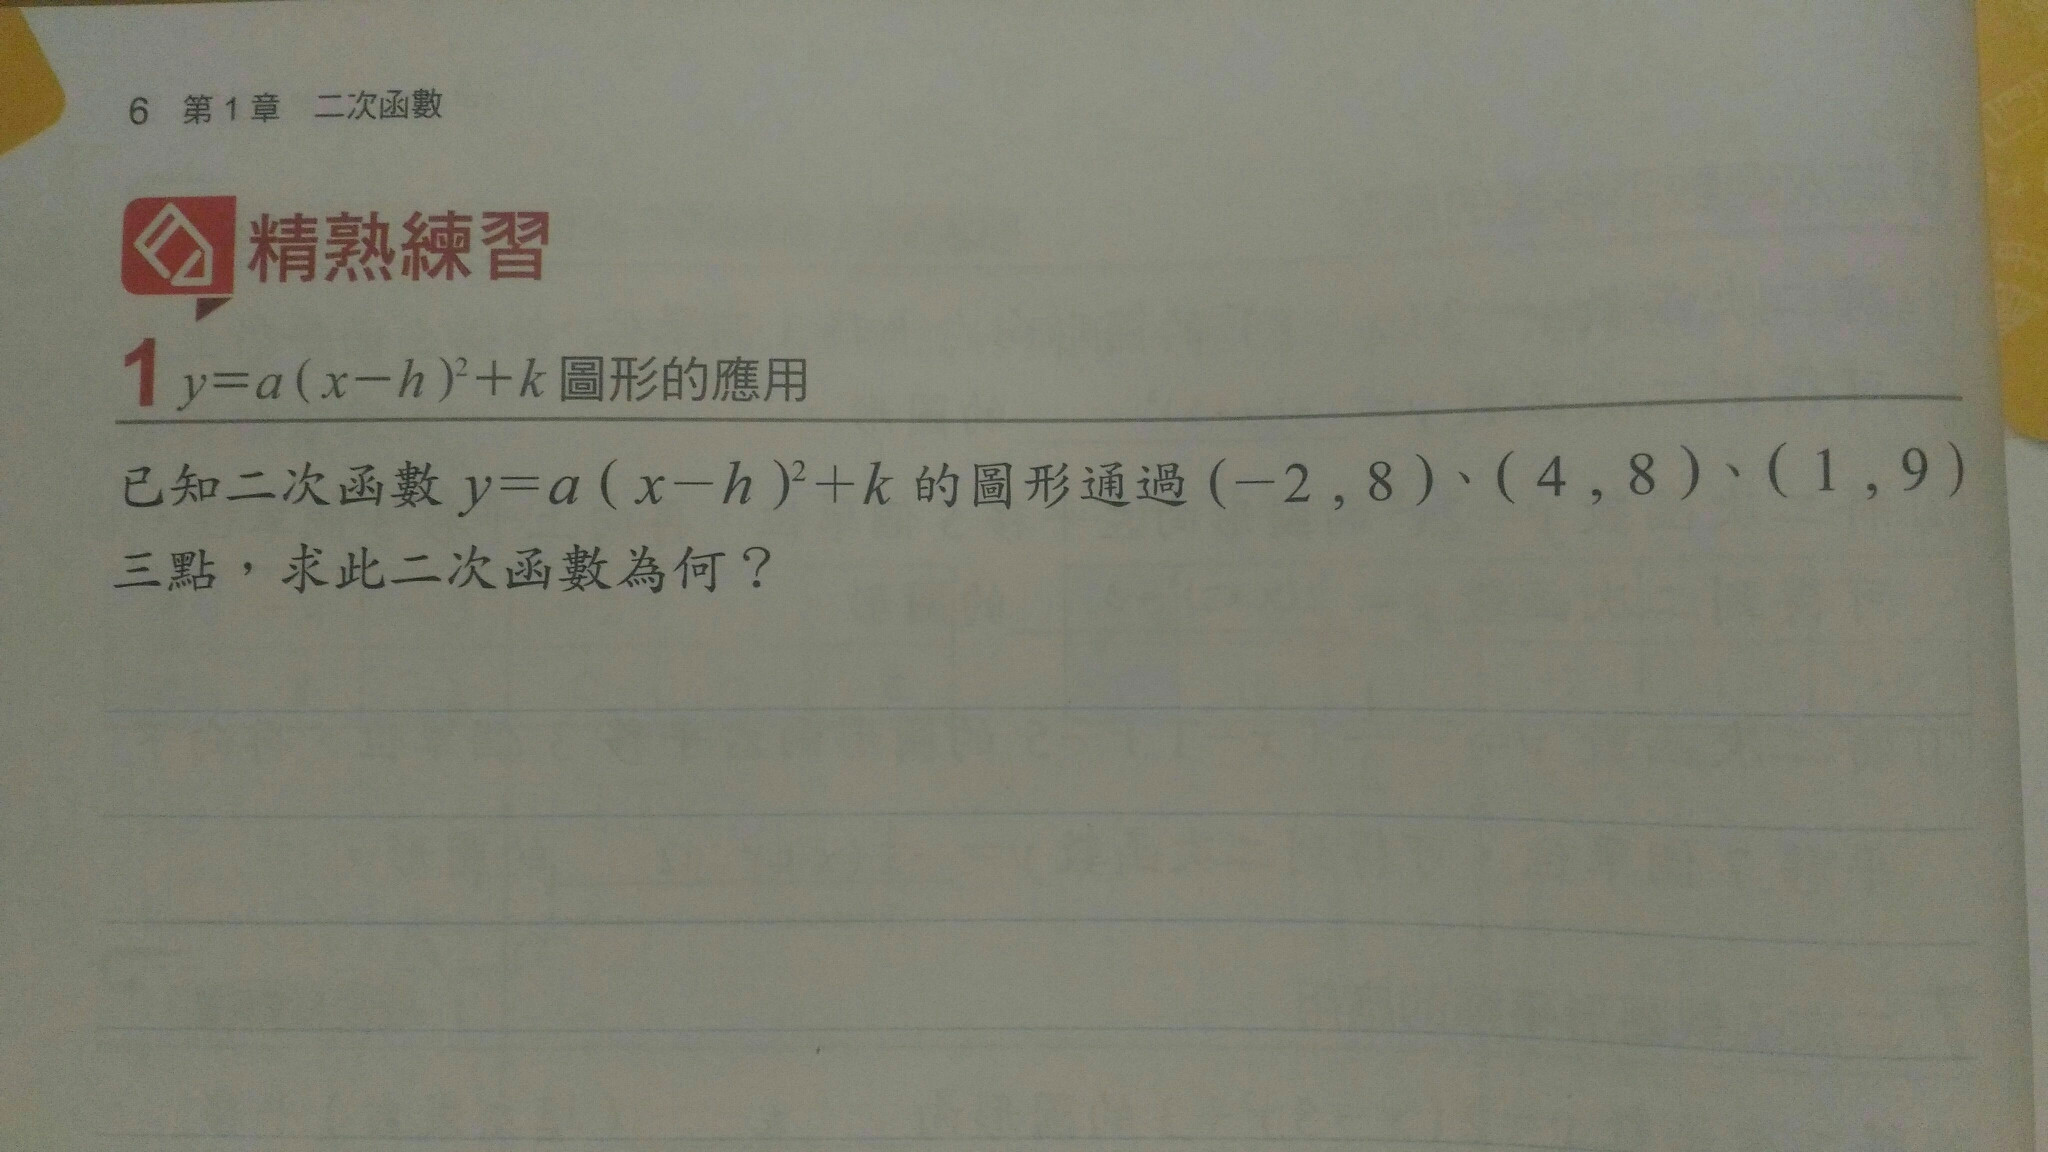 6 第1章 二次函數
精熟練習
1 y=a(x-h)²+k圖形的應用
已知二次函數y=a(x-h)²+k的圖形通過(-2,8)、(4,8)、(1,9)
三點，求此二次函數為何？